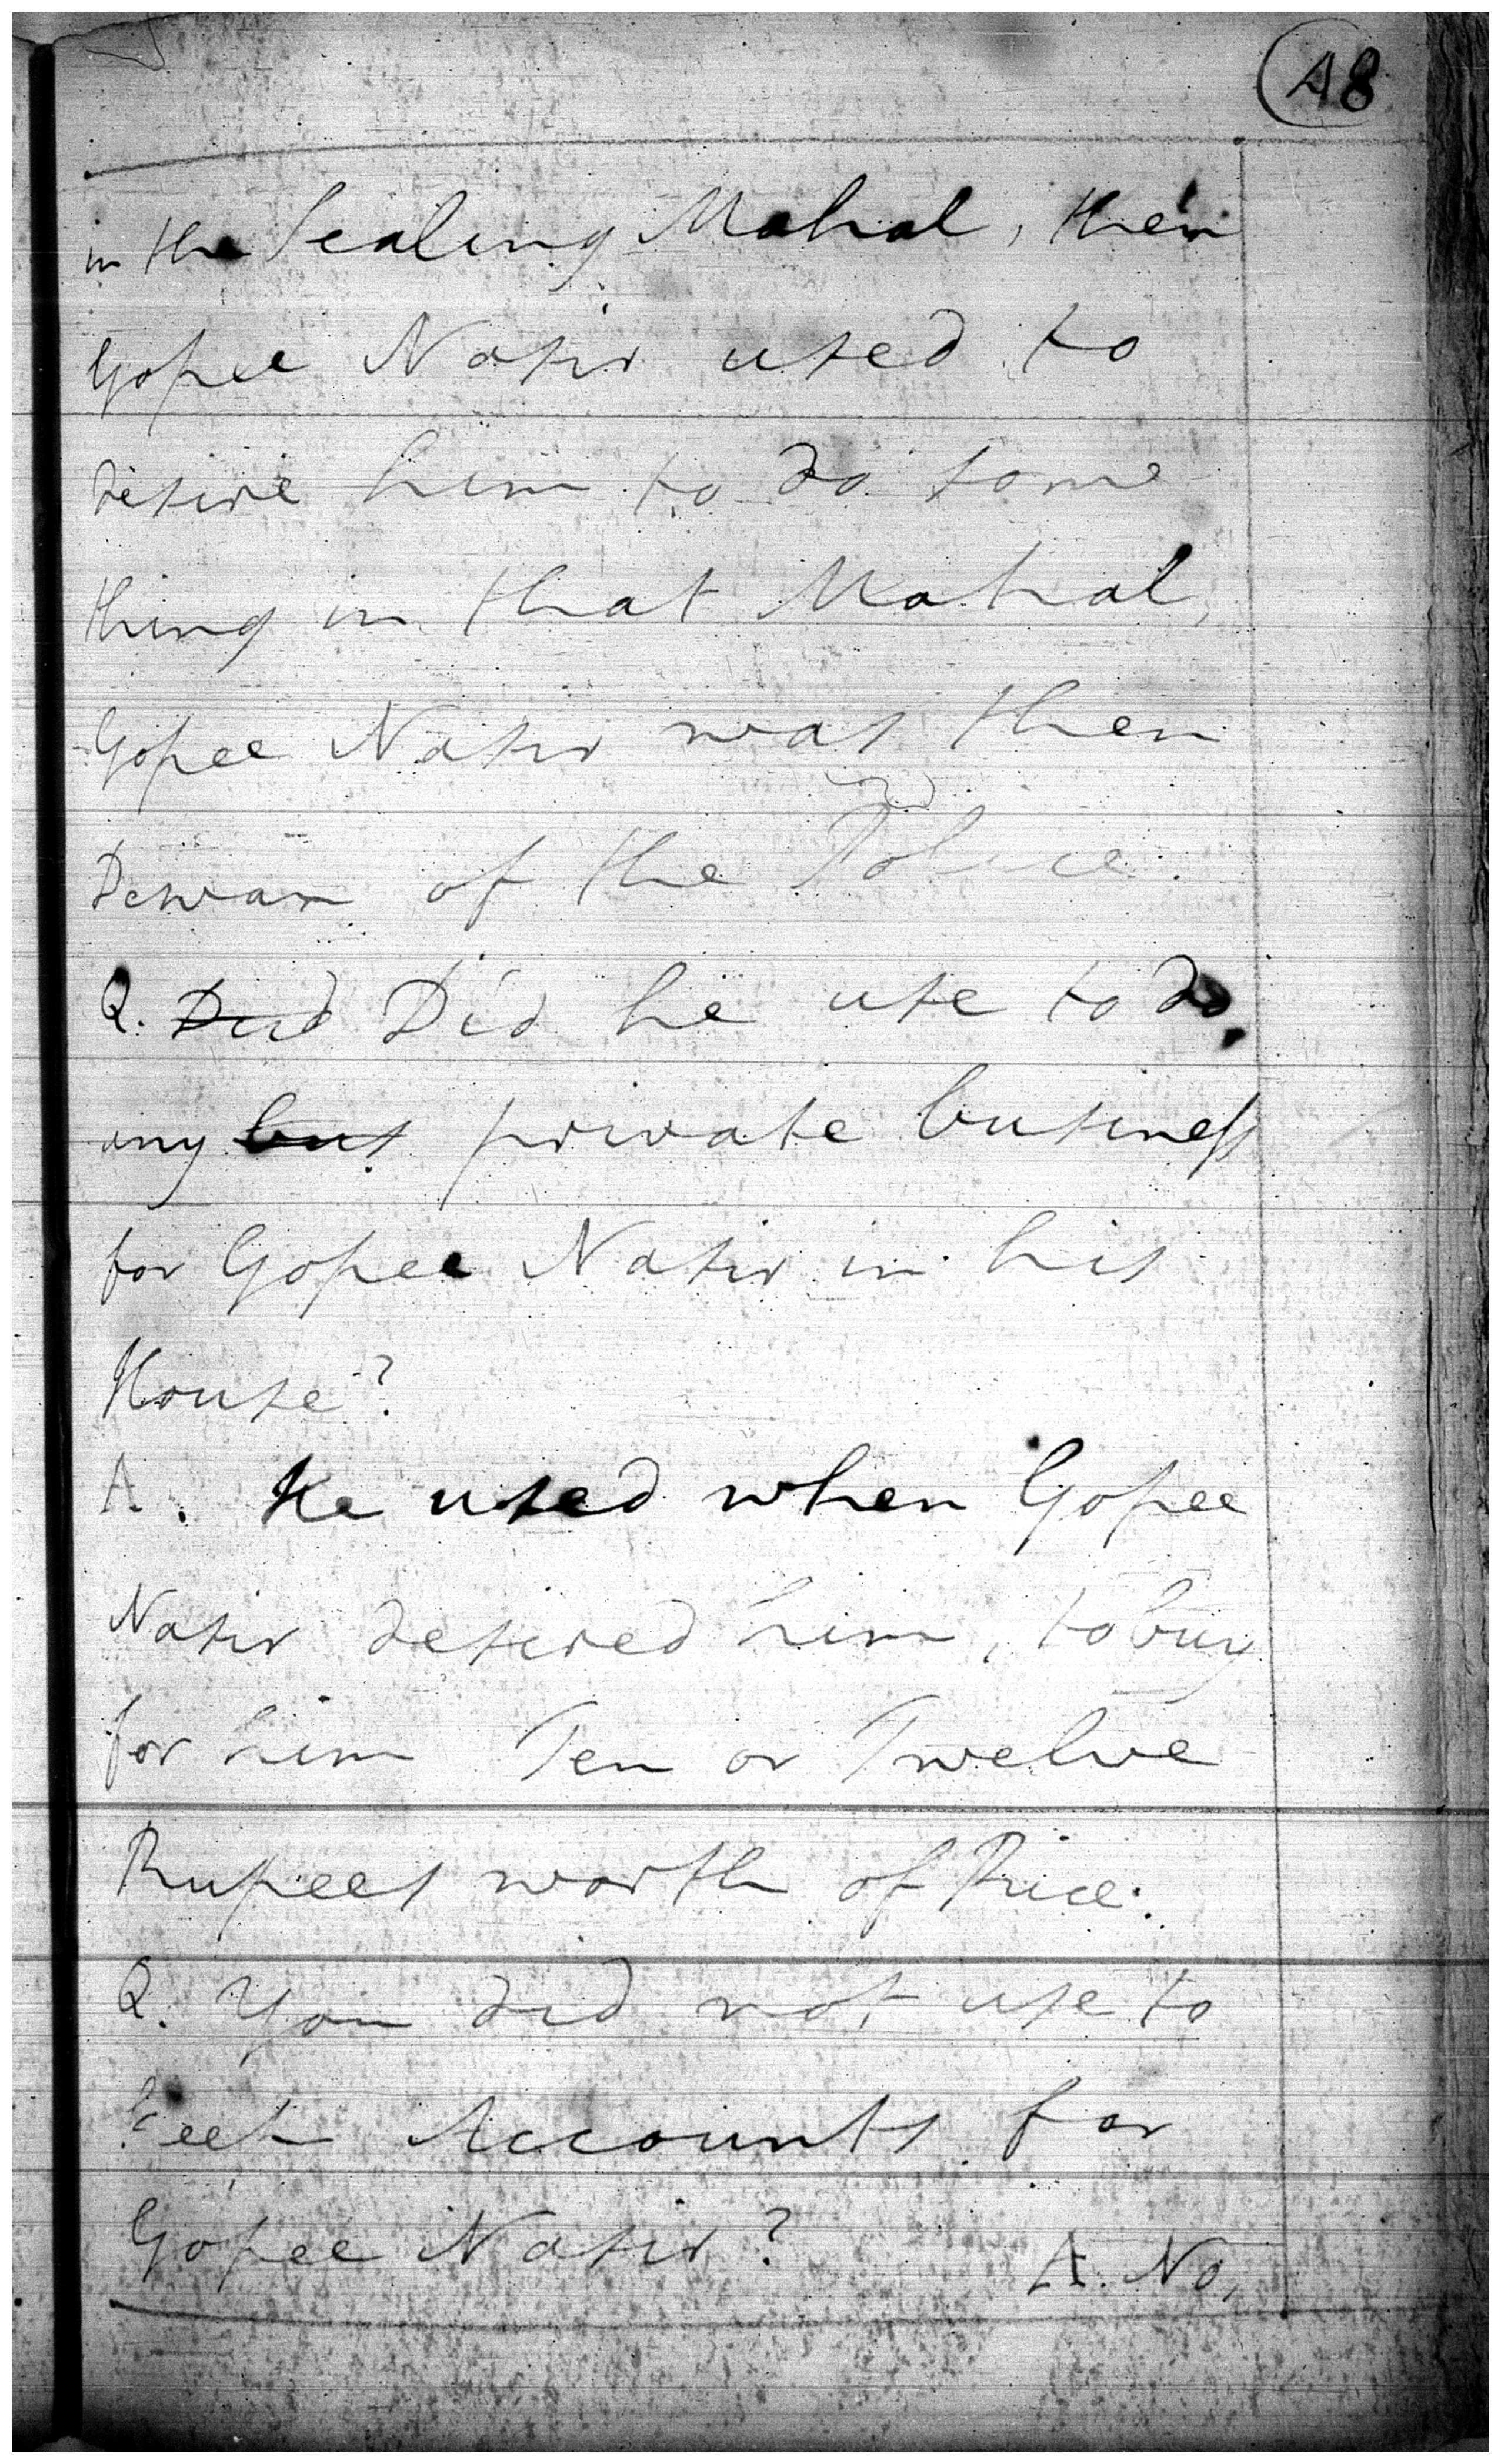 A8
in the Sealing Mahal, then
Gopee Nasir used to
desire him to do some
thing in that Mahal,
Gopee Nasir was then
Dewan of the Police.
Q. Did Did he use to do
any bus private business
for Gopee Nasir in his
House?
A. He used when Gopee
Nasir desired him, to buy
for him Ten or Twelve
Rupees worth of Rice.
Q. You did not use to
keep Accounts for
Gopee Nasir? A. No,